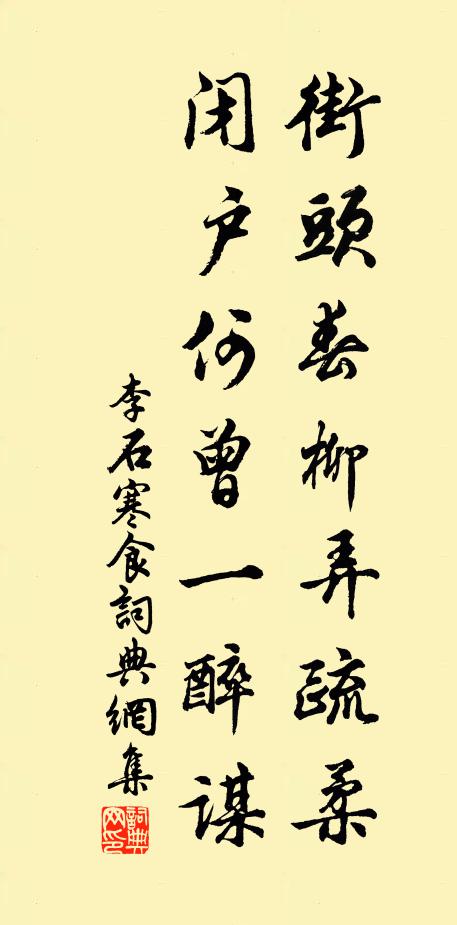 街頭春柳弄疏柔
闭户何曾一醉謀
李石寒食詞典網集
詞典網印